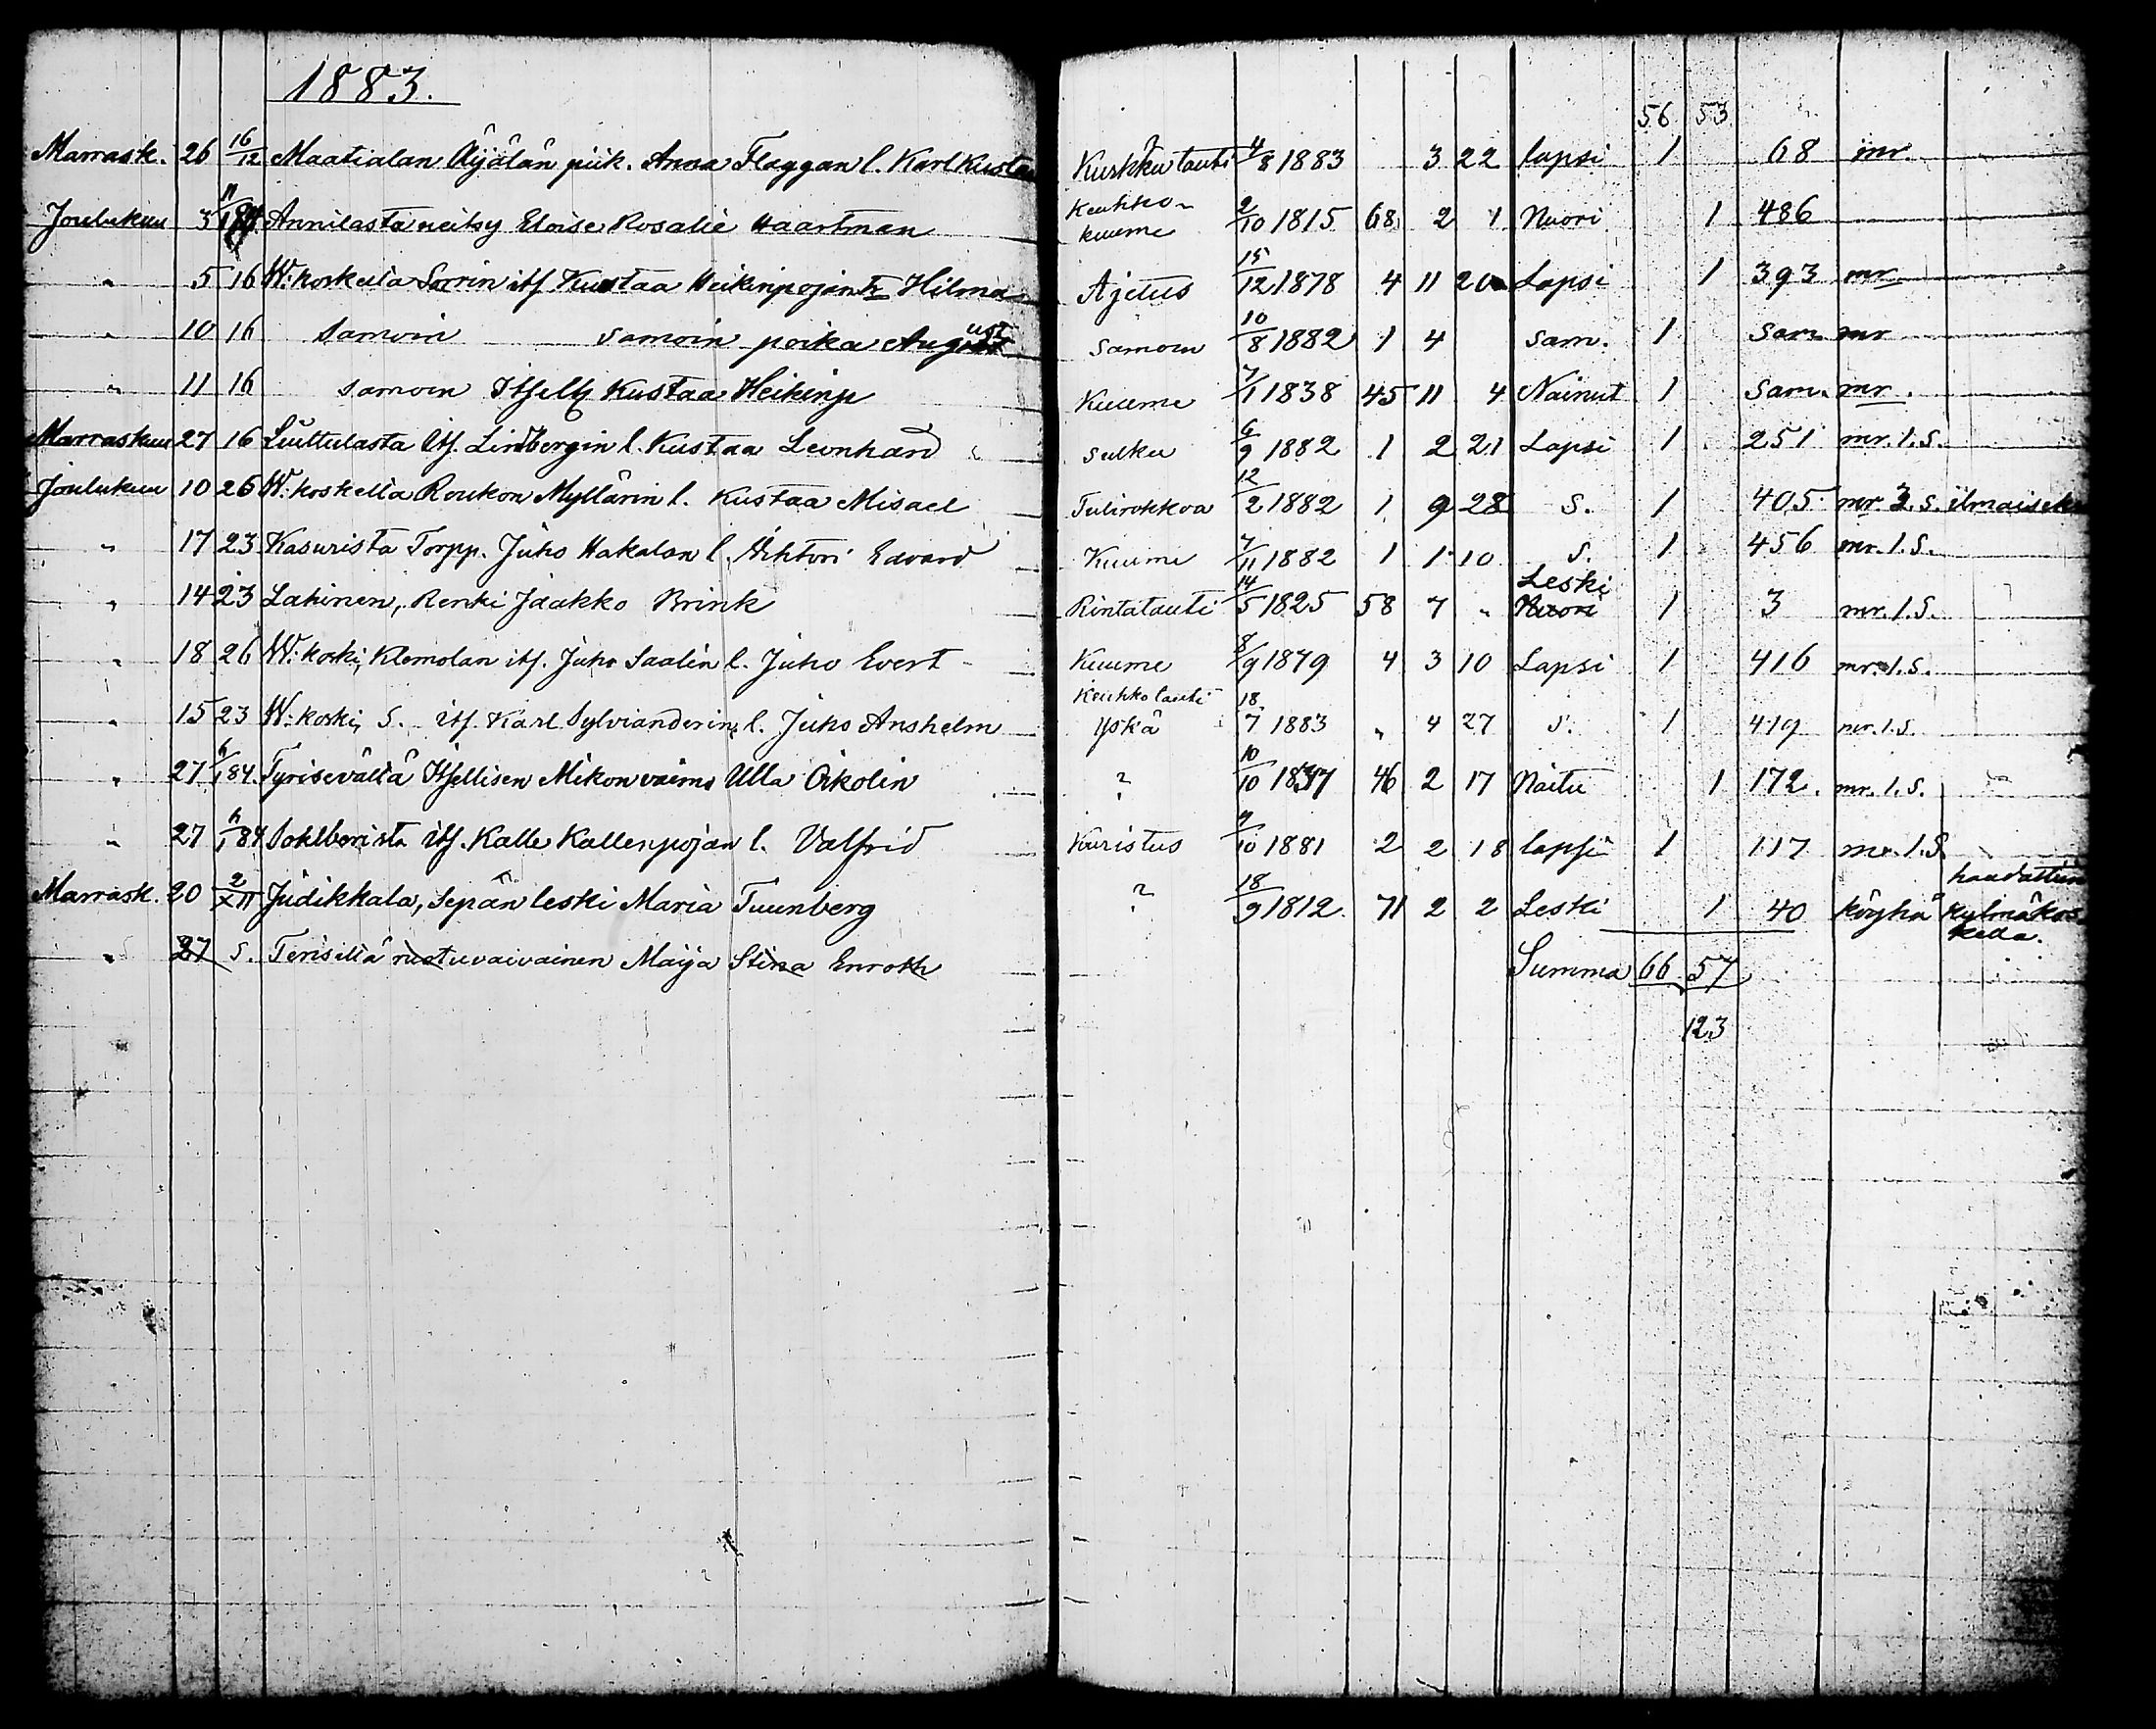 1883.
56 53
Marrask. 26 16/12 Maatialan Äijälän piik. Anna Flaggan l. Karl Kusta Kurkku tauti 4/8 1883 3 22 lapsi 1 68 mr.
Joulukuu 3 Annilasta neitsy Eloise Rosalie Haartman Keuhko-kuume 2/10 1815 68 2 1 Nuori 1 486
" 5 16 W:koskelta Sorrin its Kustaa Heikinpojan tr Hilma Ajetus 15/12 1878 4 11 20 Lapsi 1 393 mr
" 10 16 Samoin samoin poika August Samoin 10/8 1882 1 4 sam. 1 Sam mr
" 11 16 samoin Itsell Kustaa Heikinp Kuume 7/1 1838 45 11 4 Nainut 1 Sam. mr.
Marraskuu 27 16 Luttulasta Its. Lindbergin l. Kustaa Leonhard sulku 6/9 1882 1 2 21 Lapsi 1 251 mr. 1. S.
Joulukuu 10 26 W:koskella Roukon Myllärin l. Kustaa Misael Tulirokkoa 12/2 1882 1 9 28 S. 1 405 mr. 3. S. ilmaiseksi
" 17 23 Kasurista Torpp. Juho Hakalan l. Vihtori Edvard Kuume 7/11 1882 1 1 10 S. 1 456 mr. 1. S.
" 14 23 Lahinen, Renki Jaakko Brink Rintatauti 14/5 1825 58 7 " Leski Nuori 1 3 mr. 1. S.
" 18 26 W:koski, Klemolan its. Juho Saalin l. Juho Evert Kuume 8/9 1879 4 3 10 Lapsi 1 416 mr. 1. S.
" 15 23 W:koski, S. its. Karl Sylvianderin l. Juho Anshelm Keuhkotauti Yskä 18/7 1883 " 4 27 S. 1 419 mr. 1. S.
" 27 6/1 84. Tyrisevältä Itsellisen Mikon vaimo Ulla Oikolin ? 10/10 1837 46 2 17 Naitu 1 172. mr. 1. S.
" 27 6/1 84 Sohlberista its. Kalle Kallenpojan l. Valfrid Kuristus 9/10 1881 2 2 18 lapsi 1 117 mr. 1. S
Marrask. 20 2/XII Judikkala, Sepän leski Maria Tuunberg ? 18/9 1812. 71 2 2 Leski 1 40 köyhä haudattiin kylmäkoskella.
" 27 S. Terisillä ruotuvaivainen Maija Stina Enroth
Summa 66 57
123